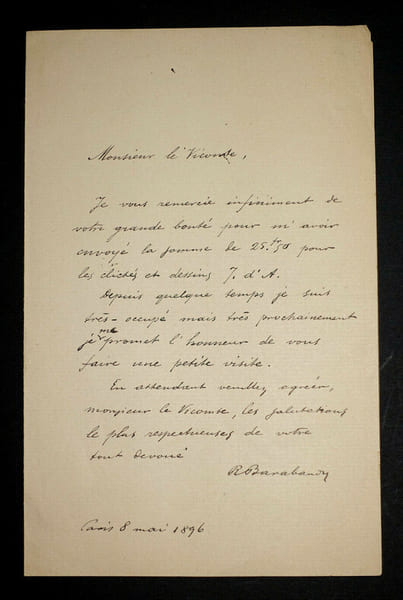 Monsieur le Vicomte,
Je vous remercie infiniment de
votre grande bonté pour m'avoir
envoyé la somme de 25.fr50 pour
les clichés et dessins J. d'A.
Depuis quelque temps je suis
très-occupé mais très prochainement
je me promet l'honneur de vous
faire une petite visite.
En attendant veuillez agréer,
monsieur le Vicomte, les salutations
le plus respectueuses de votre
tout devoué
Paris 8 mai 1896